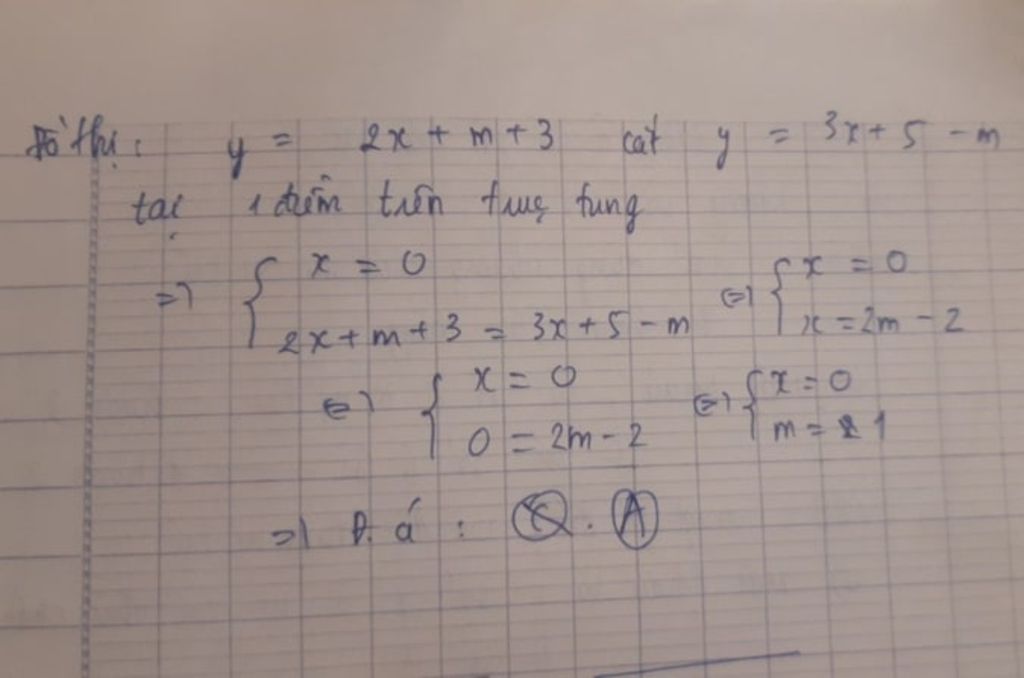 Đồ thị: y = 2x + m + 3 cắt y = 3x + 5 - m
tại 1 điểm trên trục tung
=> { x = 0 <=> { x = 0
2x + m + 3 = 3x + 5 - m x = 2m - 2
<=> { x = 0 <=> { x = 0
0 = 2m - 2 m = 1
=> Đ. á : A